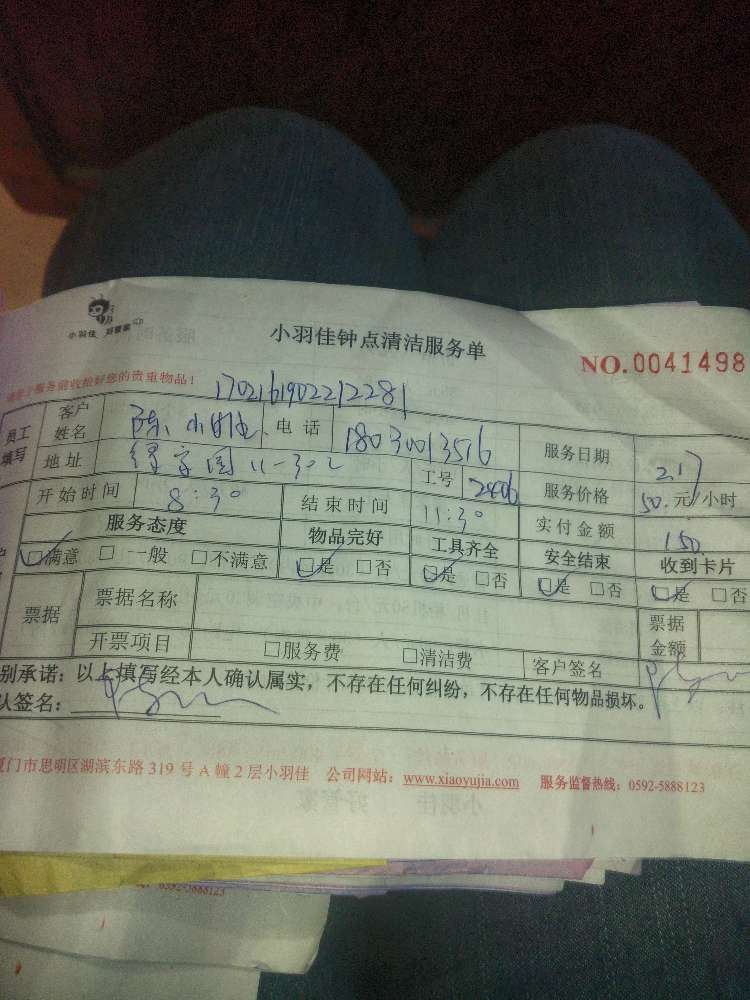 小羽佳 好管家
小羽佳钟点清洁服务单
NO.0041498
服务前收拾好您的贵重物品！
170216190221228​1
员工填写 客户姓名 陈小姐 电话 18030013516 服务日期 2.17
地址 11-302 工号 2406 服务价格 50.元/小时
开始时间 8:30 结束时间 11:30 实付金额 150
服务态度 物品完好 工具齐全 安全结束 收到卡片
□满意 □一般 □不满意 □是 □否 □是 □否 □是 □否 □是 □否
票据 票据名称 票据金额
开票项目 □服务费 □清洁费 客户签名
别承诺：以上填写经本人确认属实，不存在任何纠纷，不存在任何物品损坏。
认签名：
厦门市思明区湖滨东路319号A幢2层小羽佳 公司网站：www.xiaoyujia.com 服务监督热线：0592-5888123
0592-5888123